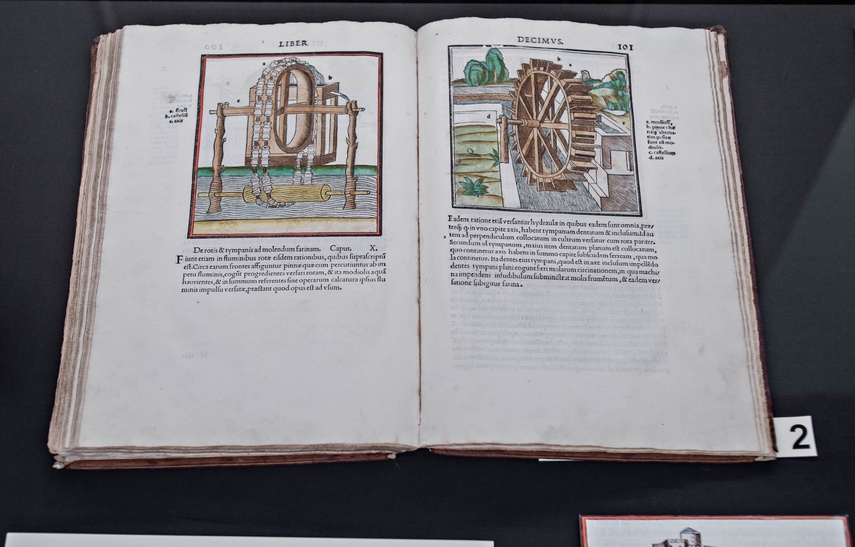 LIBER
a
c
b
a. situli
b. castellũ
c. axis
De rotis & tympanis ad molendum farinam. Caput. X.
Fiunt etiam in fluminibus rotæ eisdem rationibus, quibus suprascriptũ
est. Circa earum frontes affiguntur pinnæ quæ cum percutiuntur ab im
petu fluminis, cogũt progredientes versari rotam, & ita modiolis aquã
haurientes, & in summum referentes sine operarum calcatura ipsius flu
minis impulsu versatæ, præstant quod opus est ad vsum.
DECIMVS.
101
b
d
a. modioli,
c. castellum
d. axis
Eadem ratione etiã versantur hydraulæ in quibus eadem sunt omnia, præ
terq̃ q̃ in vno capite axis, habent tympanum dentatum & inclusum, id au
tem ad perpendiculum collocatum in cultrum versatur cum rota pariter.
Secundum id tympanum, maius item dentatum planum est collocatum,
quo continetur axis habens in summo capite subscudem ferream, qua mo
la continetur. ita dentes eius tympani, quod est in axe inclusum impellẽdo
dentes tympani plani cogunt fieri molarum circinationem, in qua machi
na impendens infudibulum subministrat molis frumentum, & eadem ver
satione subigitur farina.
2